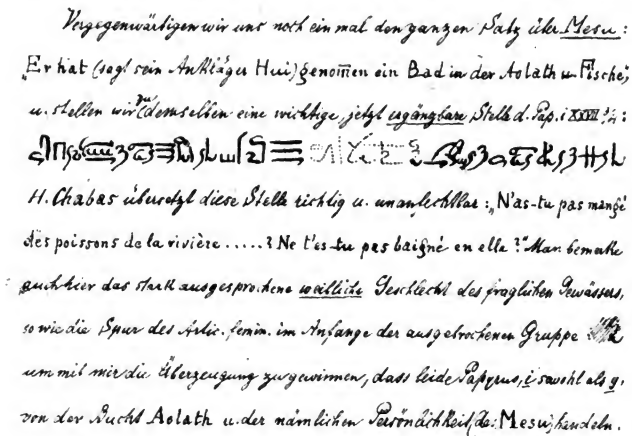 Vergegenwärtigen wir uns noch einmal den ganzen Satz über Mesu:
„Er hat (sagt sein Ankläger Hui) genom̄en ein Bad in der Aolath u. Fische",
u. stellen wir zu demselben eine wichtige, jetzt ergänzbare Stelle d. Pap. i
H. Chabas übersetzt diese Stelle richtig u. unanfechtbar: „N'as-tu pas mangé
des poissons de la rivière.....? Ne t'es-tu pas baigné en elle?" Man bemerke
auch hier das stark ausgesprochene weibliche Geschlecht des fraglichen Gewässers,
sowie die Spur des Artic. femin. im Anfange der ausgebrochenen Gruppe
um mit mir die Überzeugung zu gewinnen, dass beide Papyrus, i sowohl als g,
von der Bucht Aolath u. der nämlichen Persönlichkeit, des Mesu, handeln.